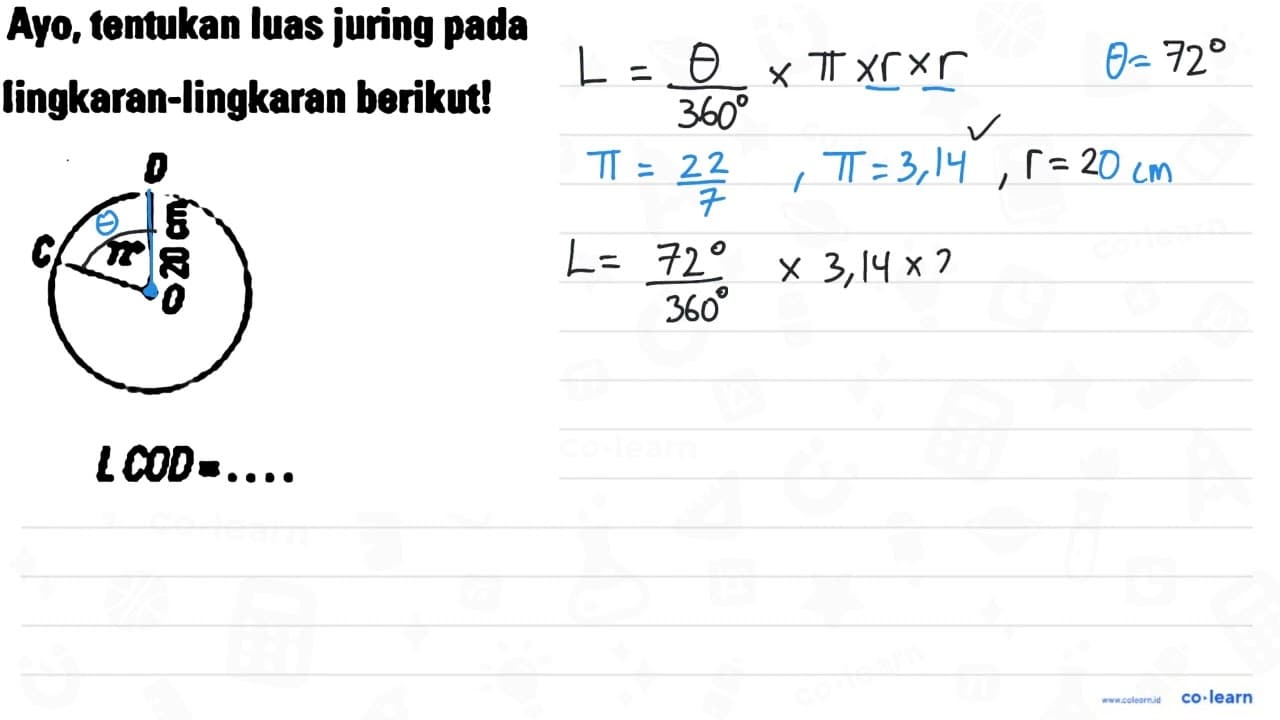 Ayo, tentukan luas juring pada
lingkaran-lingkaran berikut!
D
C
θ
20 cm
O
L COD = ....
L = θ/360° × π × r × r
θ = 72°
π = 22/7 , π = 3,14 ✓ , r = 20 cm
L = 72°/360° × 3,14 × 2
co·learn
www.colearn.id co·learn